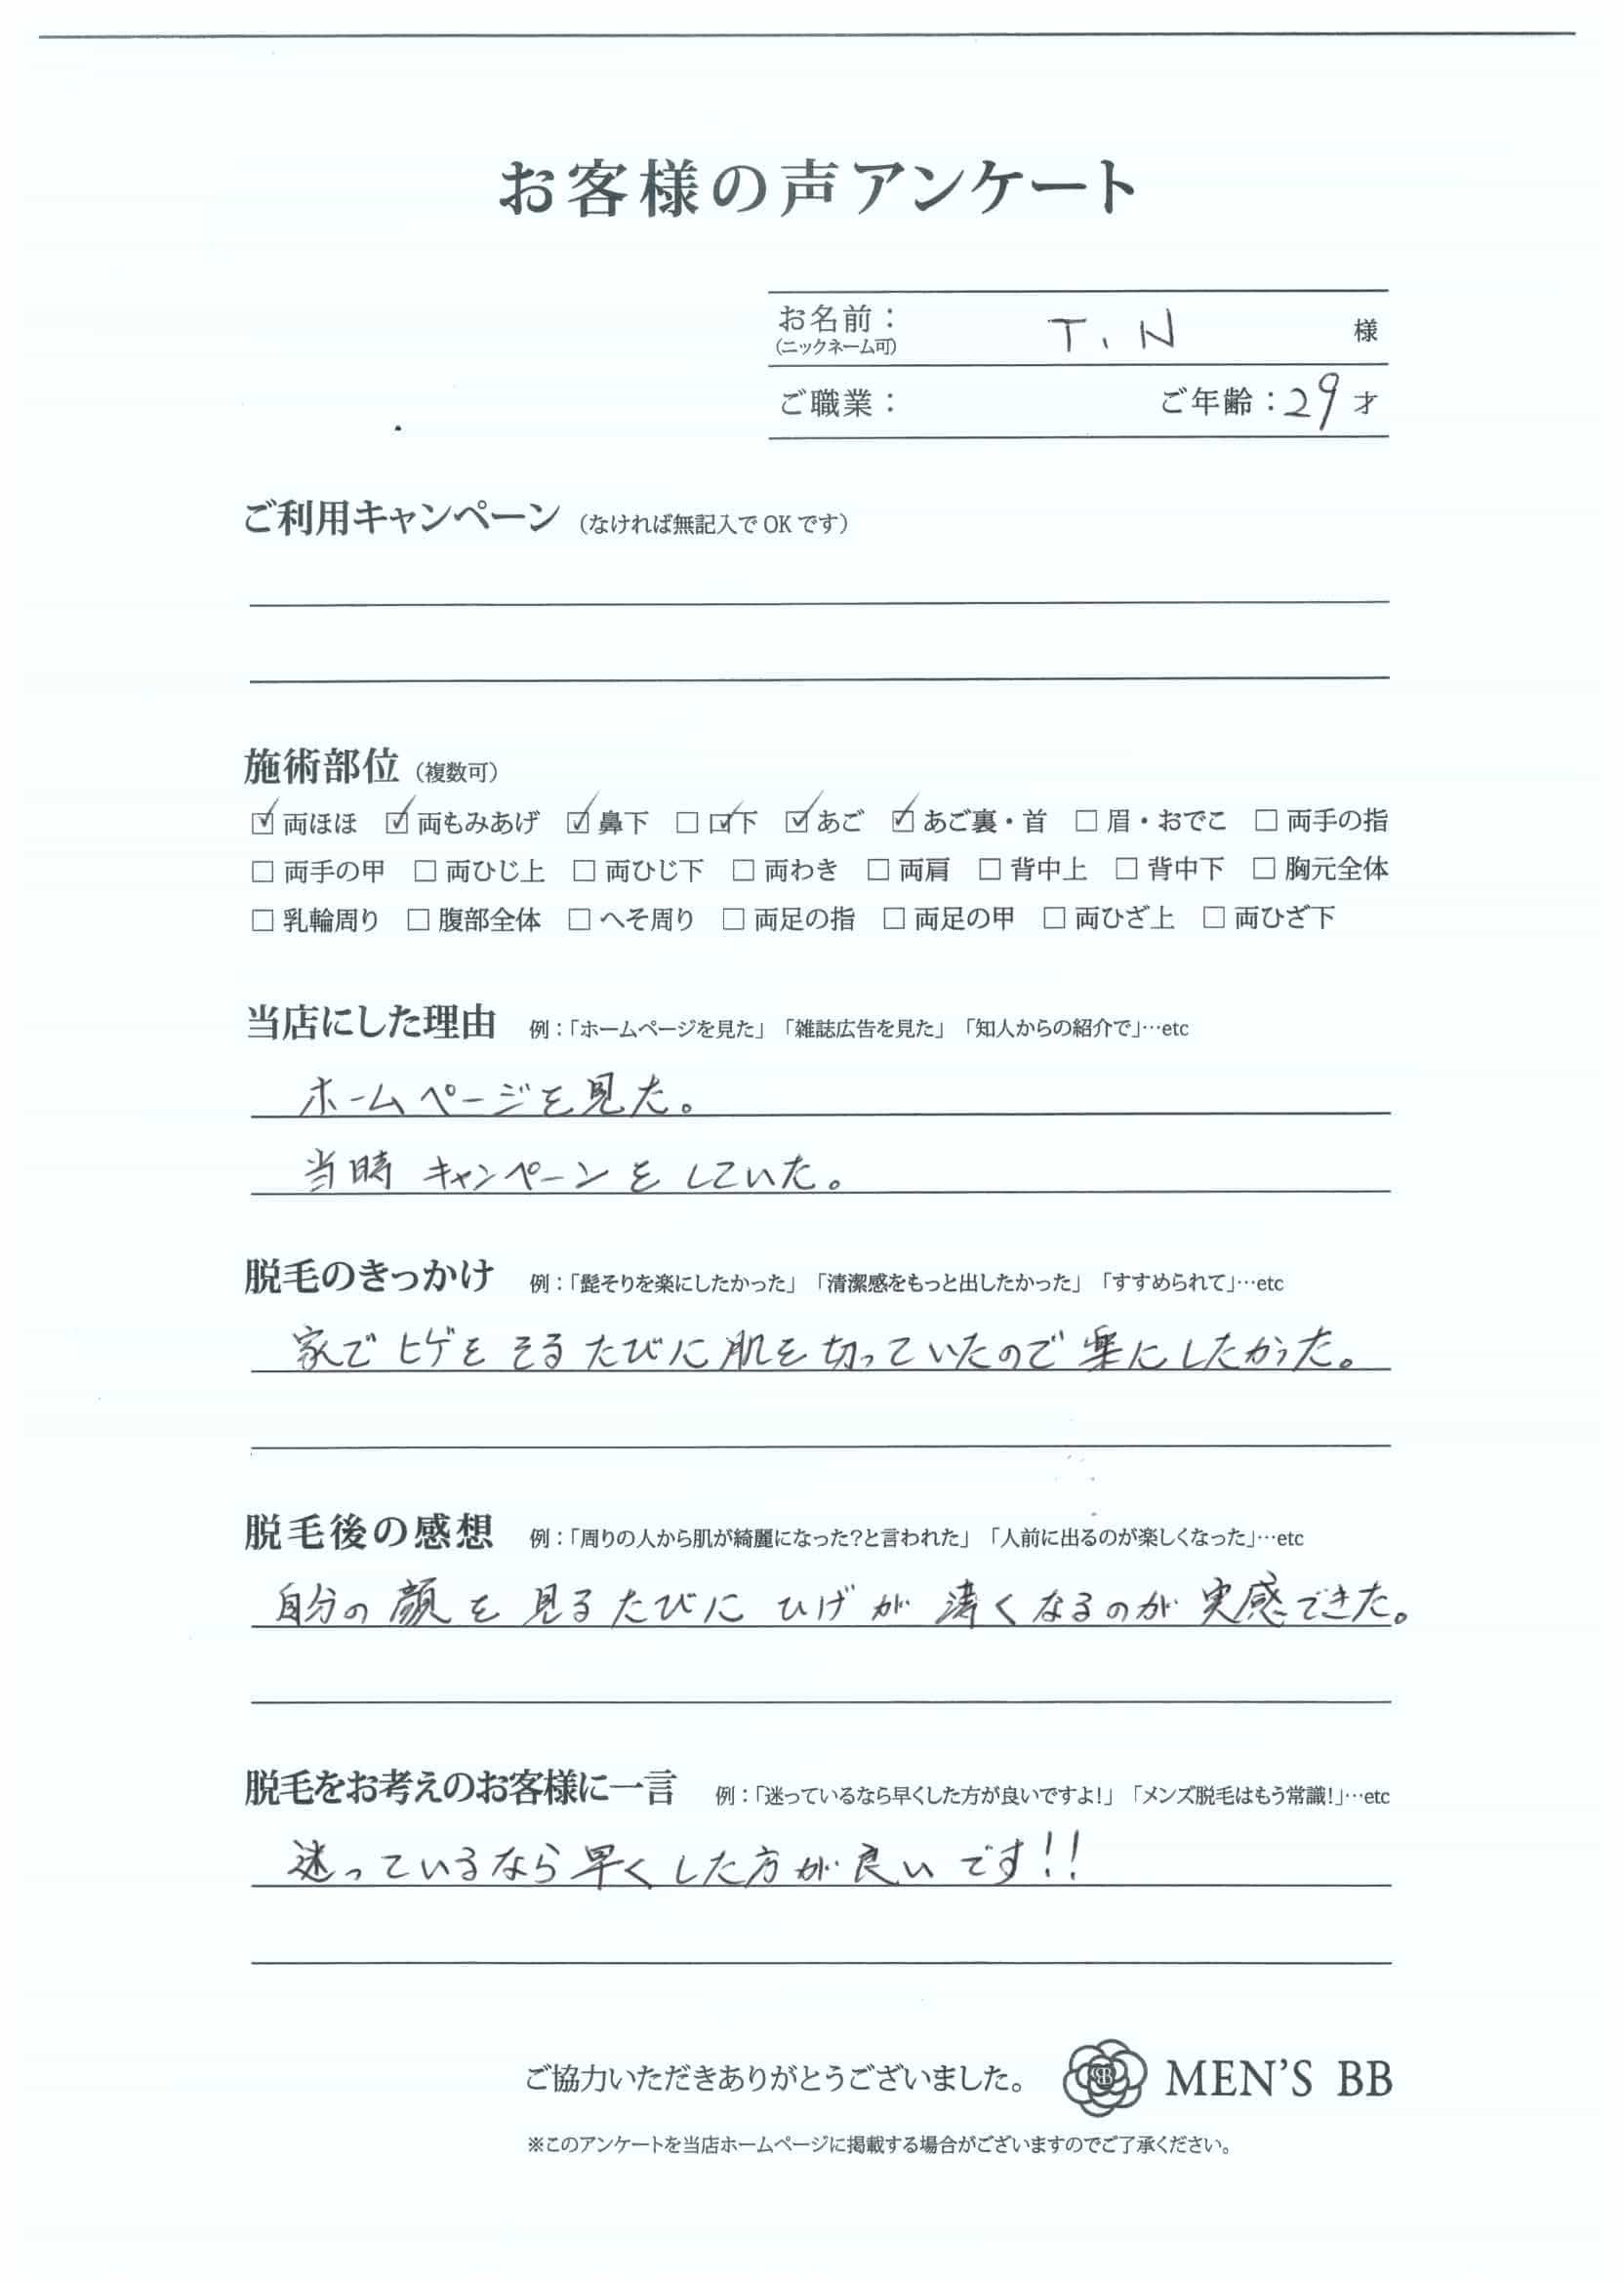 お客様の声アンケート
お名前： T.N 様
(ニックネーム可)
ご職業： ご年齢：29才
ご利用キャンペーン（なければ無記入でOKです）
施術部位（複数可）
☑両ほほ ☑両もみあげ ☑鼻下 □口下 ☑あご ☑あご裏・首 □眉・おでこ □両手の指
□両手の甲 □両ひじ上 □両ひじ下 □両わき □両肩 □背中上 □背中下 □胸元全体
□乳輪周り □腹部全体 □へそ周り □両足の指 □両足の甲 □両ひざ上 □両ひざ下
当店にした理由 例：「ホームページを見た」「雑誌広告を見た」「知人からの紹介で」…etc
ホームページを見た。
当時キャンペーンをしていた。
脱毛のきっかけ 例：「髭そりを楽にしたかった」「清潔感をもっと出したかった」「すすめられて」…etc
家でヒゲをそるたびに肌を切っていたので楽にしたかった。
脱毛後の感想 例：「周りの人から肌が綺麗になった?と言われた」「人前に出るのが楽しくなった」…etc
自分の顔を見るたびにひげが薄くなるのが実感できた。
脱毛をお考えのお客様に一言 例：「迷っているなら早くした方が良いですよ!」「メンズ脱毛はもう常識!」…etc
迷っているなら早くした方が良いです!!
ご協力いただきありがとうございました。 MEN'S BB
※このアンケートを当店ホームページに掲載する場合がございますのでご了承ください。